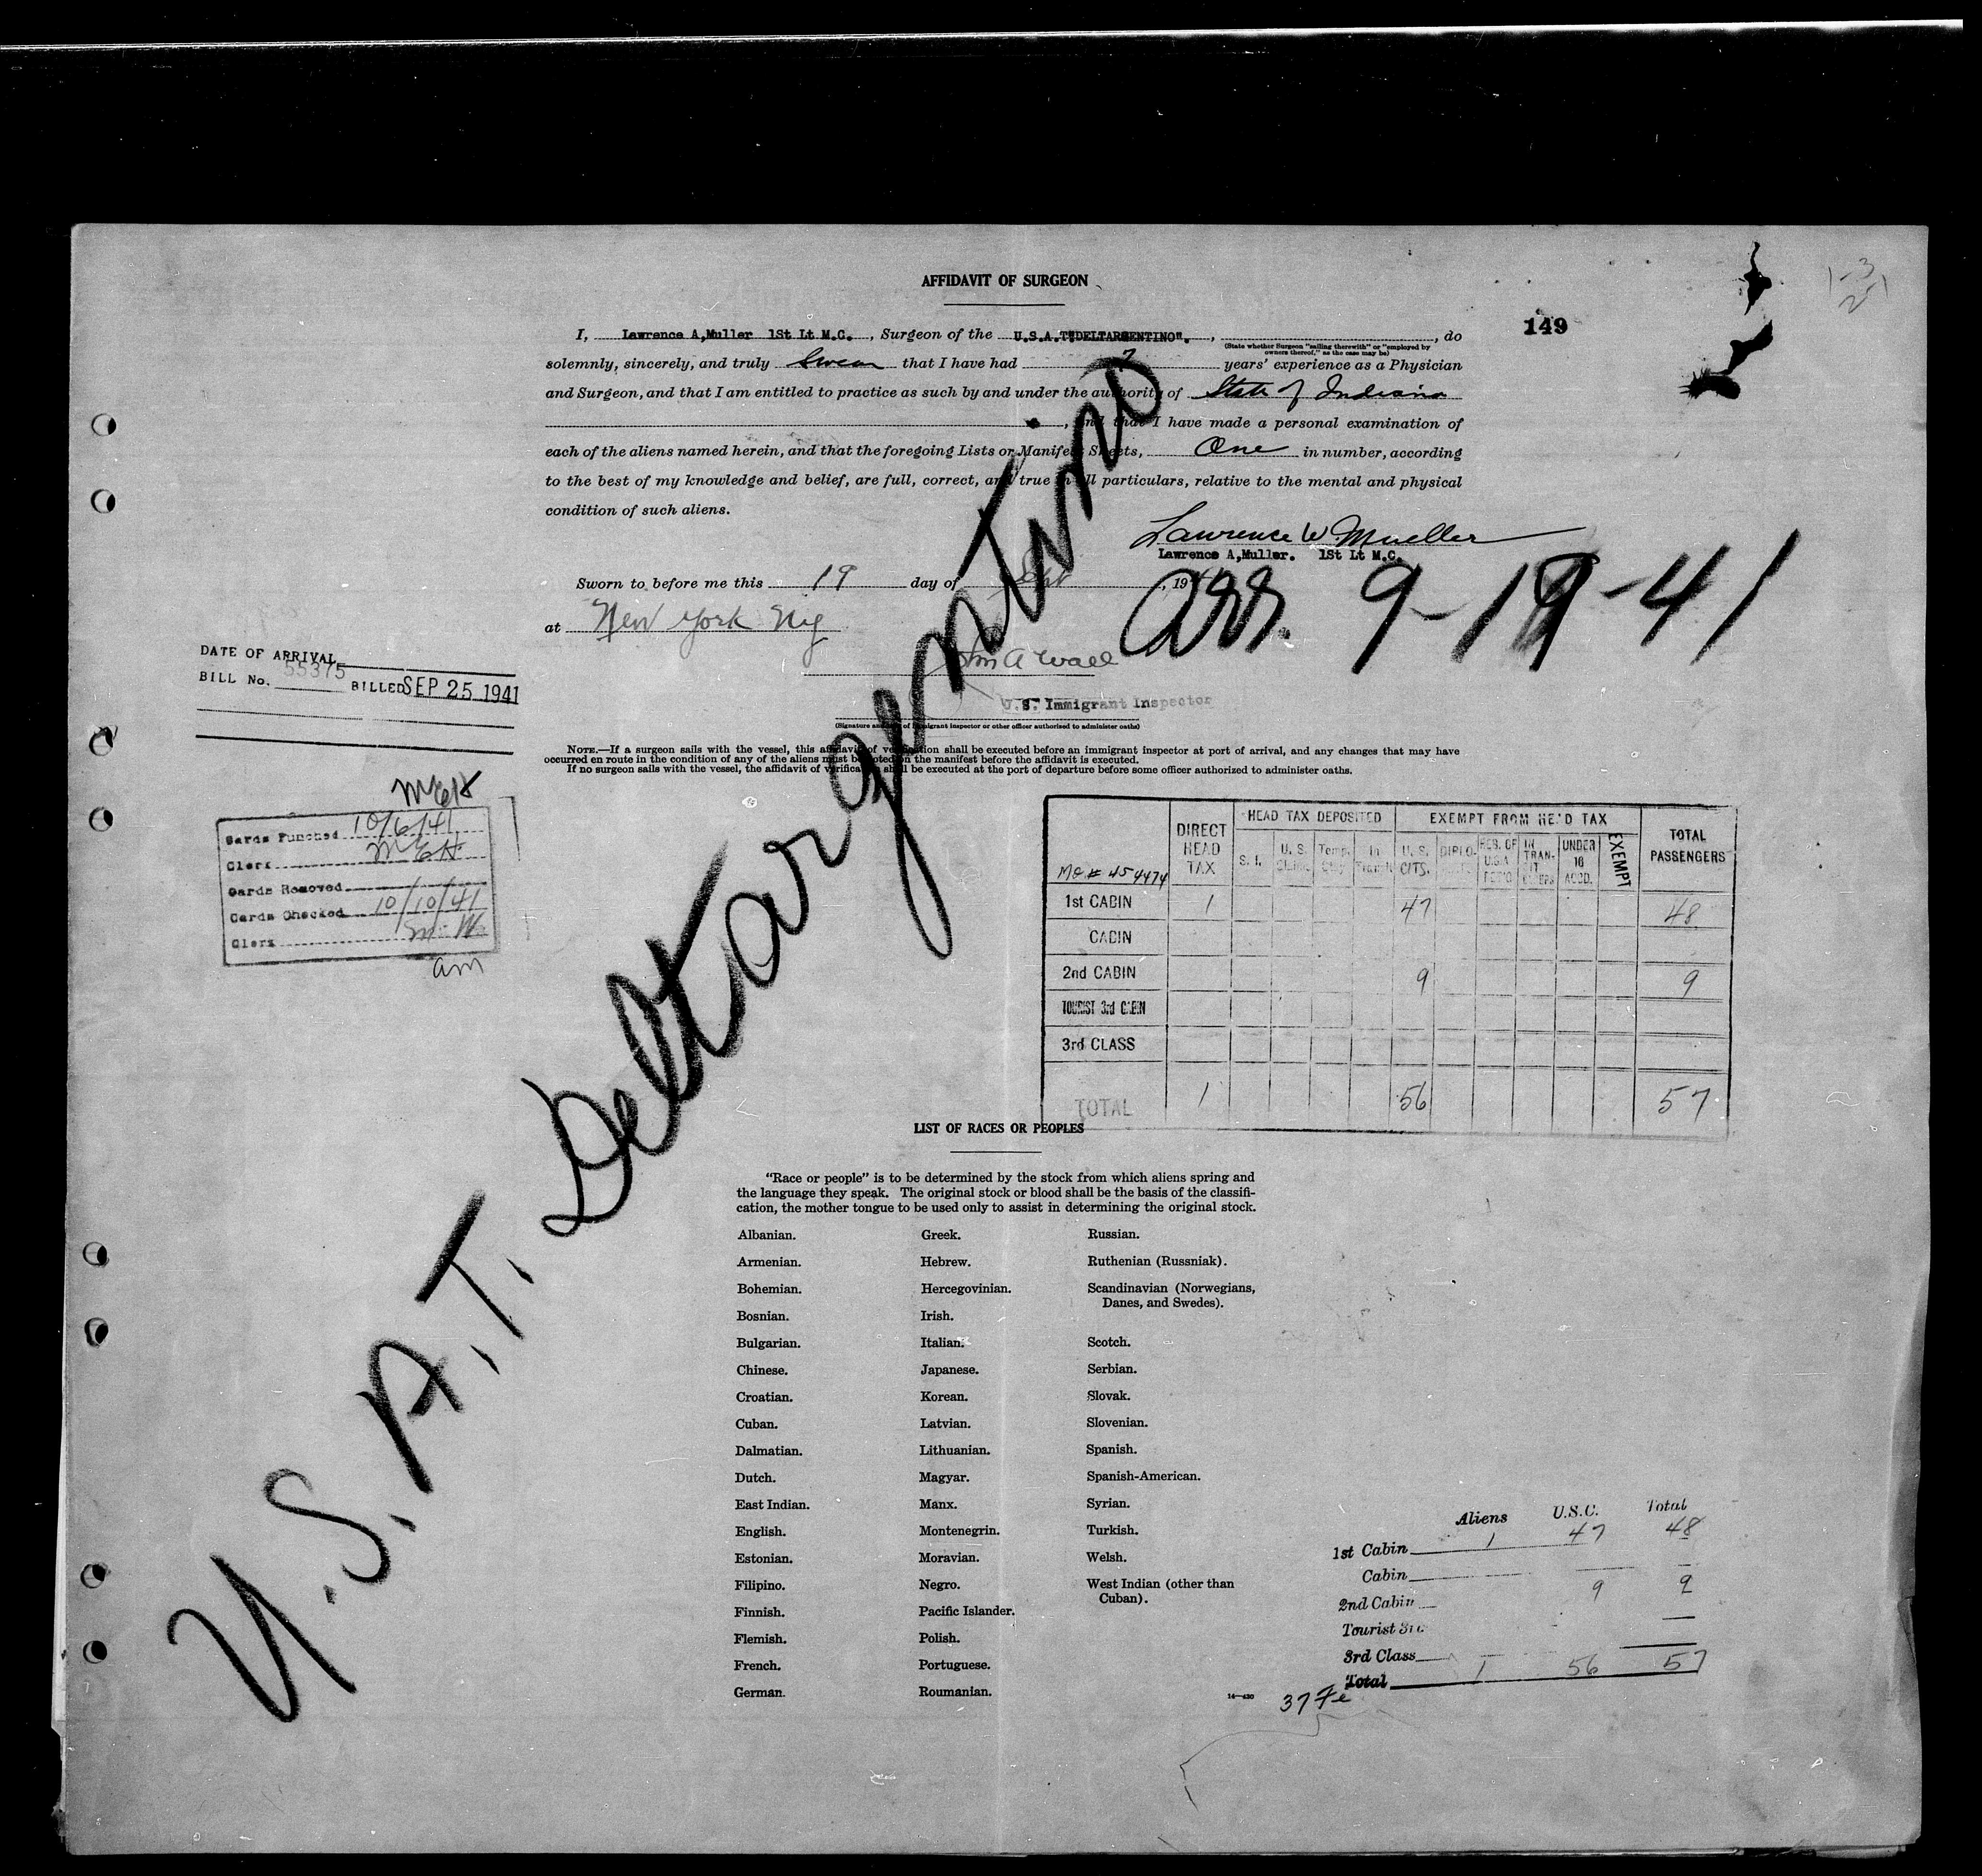 AFFIDAVIT OF SURGEON
149
I, Lawrence A,Muller 1St Lt M.C. , Surgeon of the U.S.A.T"DELTARGENTINO". , , do
(State whether Surgeon "sailing therewith" or "employed by
owners thereof," as the case may be)
solemnly, sincerely, and truly Swear that I have had 7 years' experience as a Physician
and Surgeon, and that I am entitled to practice as such by and under the authority of State of Indiana
, and that I have made a personal examination of
each of the aliens named herein, and that the foregoing Lists or Manifest Sheets, One in number, according
to the best of my knowledge and belief, are full, correct, and true in all particulars, relative to the mental and physical
condition of such aliens.
Lawrence W Mueller
Lawrence A,Muller. 1St Lt M.C.
Sworn to before me this 19 day of Sept , 19
Arr. 9-19-41
at New York Ny
U.S. Immigrant Inspector
(Signature and title of immigrant inspector or other officer authorized to administer oaths)
DATE OF ARRIVAL
BILL No. 55375 BILLED SEP 25 1941
NOTE.—If a surgeon sails with the vessel, this affidavit of verification shall be executed before an immigrant inspector at port of arrival, and any changes that may have
occurred en route in the condition of any of the aliens must be noted on the manifest before the affidavit is executed.
If no surgeon sails with the vessel, the affidavit of verification shall be executed at the port of departure before some officer authorized to administer oaths.
MEH
Cards Punched 10/6/41
Clerk MEH
Cards Removed
Cards Checked 10/10/41
Clerk M. W.
am
U.S.A.T. Deltargentino
DIRECT HEAD TAX HEAD TAX DEPOSITED EXEMPT FROM HEAD TAX TOTAL PASSENGERS
S. I. U. S. Temp. In U. S. CITS. DIPLO. RES. OF U.S.A. IN TRAN-IT UNDER 16 ACCD. EXEMPT
MO # 454474
1st CABIN 1 47 48
CABIN
2nd CABIN 9 9
TOURIST 3rd CABIN
3rd CLASS
TOTAL 1 56 57
LIST OF RACES OR PEOPLES
"Race or people" is to be determined by the stock from which aliens spring and
the language they speak. The original stock or blood shall be the basis of the classifi-
cation, the mother tongue to be used only to assist in determining the original stock.
Albanian. Greek. Russian.
Armenian. Hebrew. Ruthenian (Russniak).
Bohemian. Hercegovinian. Scandinavian (Norwegians,
Danes, and Swedes).
Bosnian. Irish.
Bulgarian. Italian. Scotch.
Chinese. Japanese. Serbian.
Croatian. Korean. Slovak.
Cuban. Latvian. Slovenian.
Dalmatian. Lithuanian. Spanish.
Dutch. Magyar. Spanish-American.
East Indian. Manx. Syrian.
English. Montenegrin. Turkish.
Estonian. Moravian. Welsh.
Filipino. Negro. West Indian (other than
Cuban).
Finnish. Pacific Islander.
Flemish. Polish.
French. Portuguese.
German. Roumanian.
14—430
Aliens U.S.C. Total
1st Cabin 1 47 48
Cabin
2nd Cabin 9 9
Tourist 3rd
3rd Class
Total 1 56 57